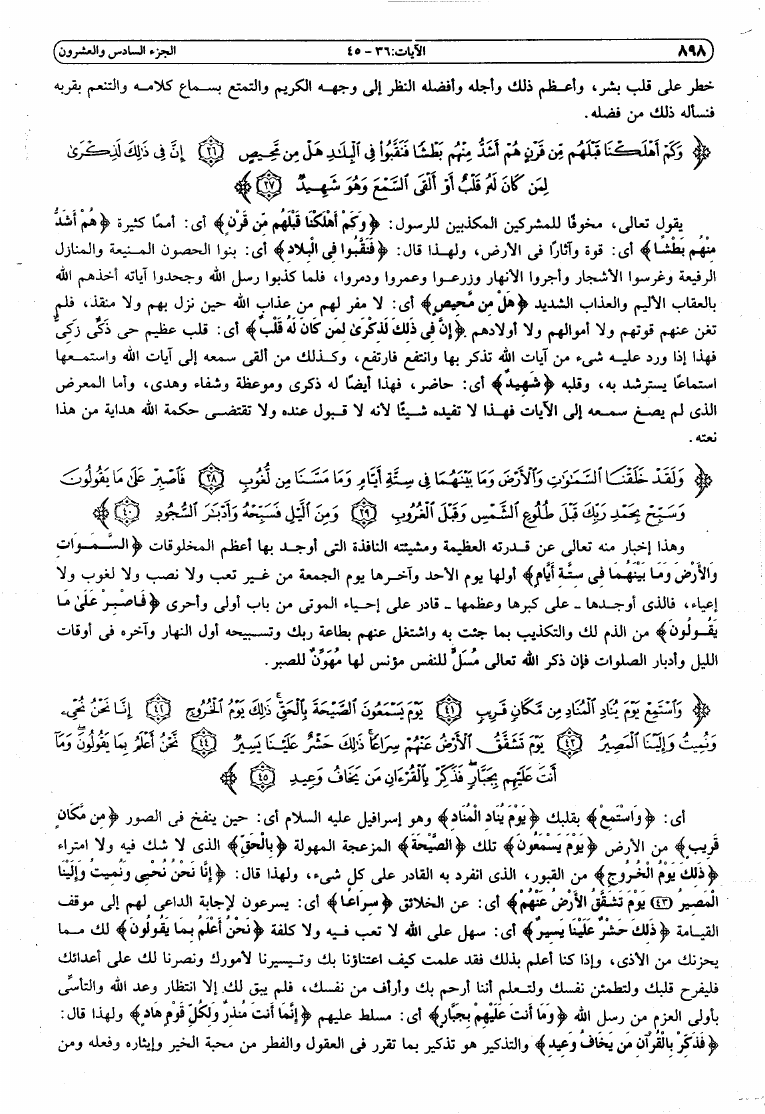 ٨٩٨ الآيات: ٣٦ - ٤٥ الجزء السادس والعشرون
خطر على قلب بشر، وأعـظم ذلك وأجله وأفضله النظر إلى وجهـه الكريم والتمتع بسـماع كلامـه والتنعم بقربه
فنسأله ذلك من فضله.
﴿ وَكَمْ أَهْلَكْنَا قَبْلَهُم مِّن قَرْنٍ هُمْ أَشَدُّ مِنْهُم بَطْشًا فَنَقَّبُوا۟ فِى ٱلْبِلَـٰدِ هَلْ مِن مَّحِيصٍ ﴿٣٦﴾ إِنَّ فِى ذَٰلِكَ لَذِكْرَىٰ
لِمَن كَانَ لَهُۥ قَلْبٌ أَوْ أَلْقَى ٱلسَّمْعَ وَهُوَ شَهِيدٌ ﴿٣٧﴾ ﴾
يقول تعالى، مخوفًا للمشركين المكذبين للرسول: ﴿وَكَمْ أَهْلَكْنَا قَبْلَهُم مِّن قَرْنٍ﴾ أى: أممًا كثيرة ﴿هُمْ أَشَدُّ
مِنْهُم بَطْشًا﴾ أى: قوة وآثارًا فى الأرض، ولهـذا قال: ﴿فَنَقَّبُوا فِى الْبِلادِ﴾ أى: بنوا الحصون المـنيعة والمنازل
الرفيعة وغرسوا الأشجار وأجروا الأنهار وزرعـوا وعمروا ودمروا، فلما كذبوا رسل الله وجحدوا آياته أخذهم الله
بالعقاب الأليم والعذاب الشديد ﴿هَلْ مِن مَّحِيصٍ﴾ أى: لا مفر لهم من عذاب الله حين نزل بهم ولا منقذ، فلم
تغن عنهم قوتهم ولا أموالهم ولا أولادهم ﴿إِنَّ فِى ذَلِكَ لَذِكْرَىٰ لِمَن كَانَ لَهُ قَلْبٌ﴾ أى: قلب عظيم حى ذَكِّى زَكِىٌّ
فهذا إذا ورد عليـه شىء من آيات الله تذكر بها وانتفع فارتفع، وكـذلك من ألقى سمعه إلى آيات الله واستمـعها
استماعًا يسترشد به، وقلبه ﴿شَهِيدٌ﴾ أى: حاضر، فهذا أيضًا له ذكرى وموعظة وشفاء وهدى، وأما المعرض
الذى لم يصـغ سمـعه إلى الآيات فهـذا لا تفيده شـيئًا لأنه لا قـبول عنده ولا تقتضـى حكمة الله هداية من هذا
نعته.
﴿ وَلَقَدْ خَلَقْنَا ٱلسَّمَـٰوَٰتِ وَٱلْأَرْضَ وَمَا بَيْنَهُمَا فِى سِتَّةِ أَيَّامٍ وَمَا مَسَّنَا مِن لُّغُوبٍ ﴿٣٨﴾ فَٱصْبِرْ عَلَىٰ مَا يَقُولُونَ
وَسَبِّحْ بِحَمْدِ رَبِّكَ قَبْلَ طُلُوعِ ٱلشَّمْسِ وَقَبْلَ ٱلْغُرُوبِ ﴿٣٩﴾ وَمِنَ ٱلَّيْلِ فَسَبِّحْهُ وَأَدْبَـٰرَ ٱلسُّجُودِ ﴿٤٠﴾ ﴾
وهذا إخبار منه تعالى عن قـدرته العظيمة ومشيئته النافذة التى أوجـد بها أعظم المخلوقات ﴿السَّـمَـوَات
وَالأَرْضَ وَمَا بَيْنَهُمَـا فِى سِتَّةِ أَيَّامٍ﴾ أولها يوم الأحد وآخـرها يوم الجمعة من غـير تعب ولا نصب ولا لغوب ولا
إعياء، فالذى أوجـدها ـ على كبرها وعظمها ـ قادر على إحـياء الموتى من باب أولى وأحرى ﴿فَـاصْـبِـرْ عَلَىٰ مَا
يَقُـولُونَ﴾ من الذم لك والتكذيب بما جئت به واشتغل عنهم بطاعة ربك وتسـبيحه أول النهار وآخره فى أوقات
الليل وأدبار الصلوات فإن ذكر الله تعالى مُسَلٍّ للنفس مؤنس لها مُهَوِّنٌ للصبر.
﴿ وَٱسْتَمِعْ يَوْمَ يُنَادِ ٱلْمُنَادِ مِن مَّكَانٍ قَرِيبٍ ﴿٤١﴾ يَوْمَ يَسْمَعُونَ ٱلصَّيْحَةَ بِٱلْحَقِّ ۚ ذَٰلِكَ يَوْمُ ٱلْخُرُوجِ ﴿٤٢﴾ إِنَّا نَحْنُ نُحْىِۦ
وَنُمِيتُ وَإِلَيْنَا ٱلْمَصِيرُ ﴿٤٣﴾ يَوْمَ تَشَقَّقُ ٱلْأَرْضُ عَنْهُمْ سِرَاعًا ۚ ذَٰلِكَ حَشْرٌ عَلَيْنَا يَسِيرٌ ﴿٤٤﴾ نَّحْنُ أَعْلَمُ بِمَا يَقُولُونَ ۖ وَمَآ
أَنتَ عَلَيْهِم بِجَبَّارٍ ۖ فَذَكِّرْ بِٱلْقُرْءَانِ مَن يَخَافُ وَعِيدِ ﴿٤٥﴾ ﴾
أى: ﴿وَاسْتَمِعْ﴾ بقلبك ﴿يَوْمَ يُنَادِ الْمُنَادِ﴾ وهو إسرافيل عليه السلام أى: حين ينفخ فى الصور ﴿مِن مَّكَانٍ
قَرِيبٍ﴾ من الأرض ﴿يَوْمَ يَسْمَعُونَ﴾ تلك ﴿الصَّيْحَةَ﴾ المزعجة المهولة ﴿بِالْحَقِّ﴾ الذى لا شك فيه ولا امتراء
﴿ذَلِكَ يَوْمُ الْخُرُوجِ﴾ من القبور، الذى انفرد به القادر على كل شىء، ولهذا قال: ﴿إِنَّا نَحْنُ نُحْيِى وَنُمِيتُ وَإِلَيْنَا
الْمَصِيرُ (٤٣) يَوْمَ تَشَقَّقُ الأَرْضُ عَنْهُمْ﴾ أى: عن الخلائق ﴿سِرَاعًا﴾ أى: يسرعون لإجابة الداعى لهم إلى موقف
القيـامة ﴿ذَلِكَ حَشْرٌ عَلَيْنَا يَسِيرٌ﴾ أى: سهل على الله لا تعب فـيه ولا كلفة ﴿نَحْنُ أَعْلَمُ بِمَا يَقُولُونَ﴾ لك مـما
يحزنك من الأذى، وإذا كنا أعلم بذلك فقد علمت كيف اعتناؤنا بك وتـيسيرنا لأمورك ونصرنا لك على أعدائك
فليفرح قلبك ولتطمئن نفسك ولتـعلم أننا أرحم بك وأرأف من نفسك، فلم يبق لك إلا انتظار وعد الله والتأسِّى
بأولى العزم من رسل الله ﴿وَمَا أَنتَ عَلَيْهِمْ بِجَبَّارٍ﴾ أى: مسلط عليهم ﴿إِنَّمَا أَنتَ مُنذِرٌ وَلِكُلِّ قَوْمٍ هَادٍ﴾ ولهذا قال:
﴿فَذَكِّرْ بِالْقُرْآنِ مَن يَخَافُ وَعِيدِ﴾ والتذكير هو تذكير بما تقرر فى العقول والفطر من محبة الخير وإيثاره وفعله ومن